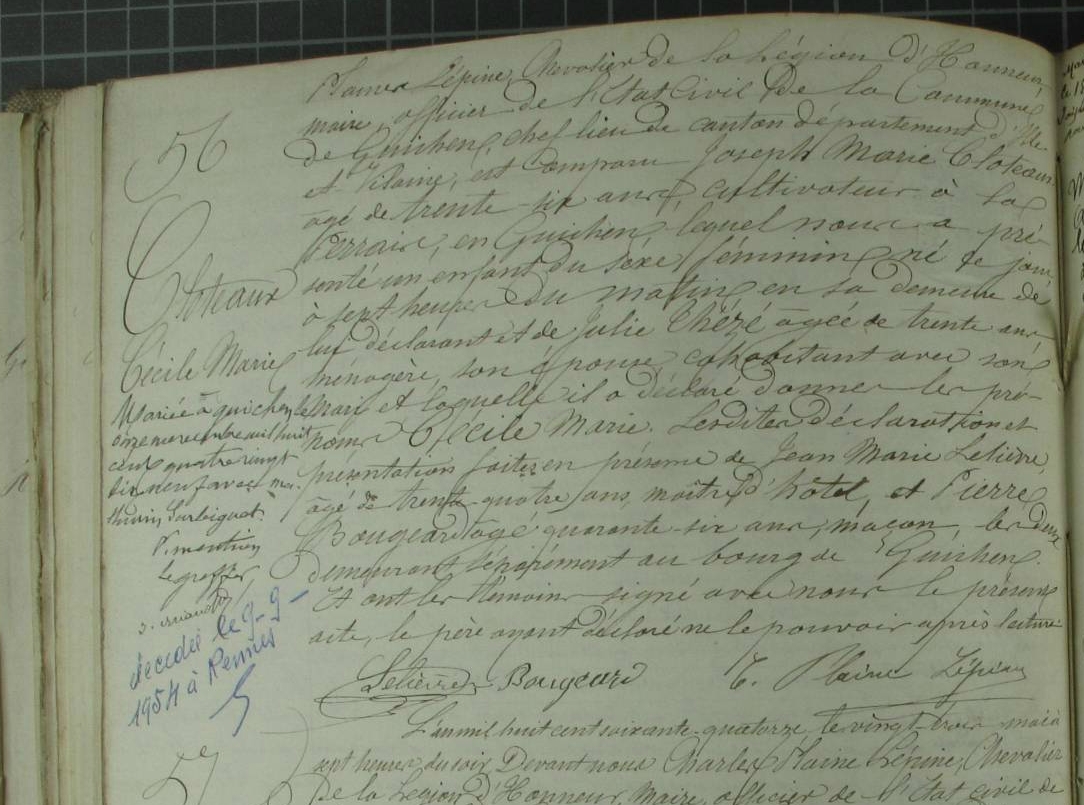 56
Cloteaux
Cécile Marie
Mariée à guichen le
onze novembre mil huit
cent quatre vingt
dix neuf avec Ma-
thurin
P. mention
le greffier
décédée le 9-9-
1954 à Rennes
Plaine Lépine, Chevalier de la Légion d'Honneur,
maire, officier de l'état Civil de la Commune
de Guichen, chef lieu de canton département d'Ille
et Vilaine, est comparu Joseph Marie Cloteaux
âgé de trente-six ans, cultivateur à la
en Guichen, lequel nous a pré-
senté un enfant du sexe féminin né ce jour
à sept heures du matin en sa demeure de
lui déclarant et de Julie Thézé âgée de trente ans
ménagère, son épouse, cohabitant avec son
mari et laquelle il a déclaré donner les pré-
noms Cécile Marie. Lesdites déclaration et
présentation faites en présence de Jean Marie Lelièvre,
âgé de trente-quatre ans, maître d'hôtel, et Pierre
Bougeard âgé quarante-six ans, maçon, les deux
demeurant séparément au bourg de Guichen.
Et ont les témoins signé avec nous le présent
acte, le père ayant déclaré ne le pouvoir après lecture
Lelièvre Bougeard C. Plaine Lépine
57
L'an mil huit cent soixante-quatorze, le vingt-trois mai à
sept heures du soir Devant nous Charles Plaine Lépine, Chevalier
de la Légion d'Honneur, Maire, officier de l'État civil de